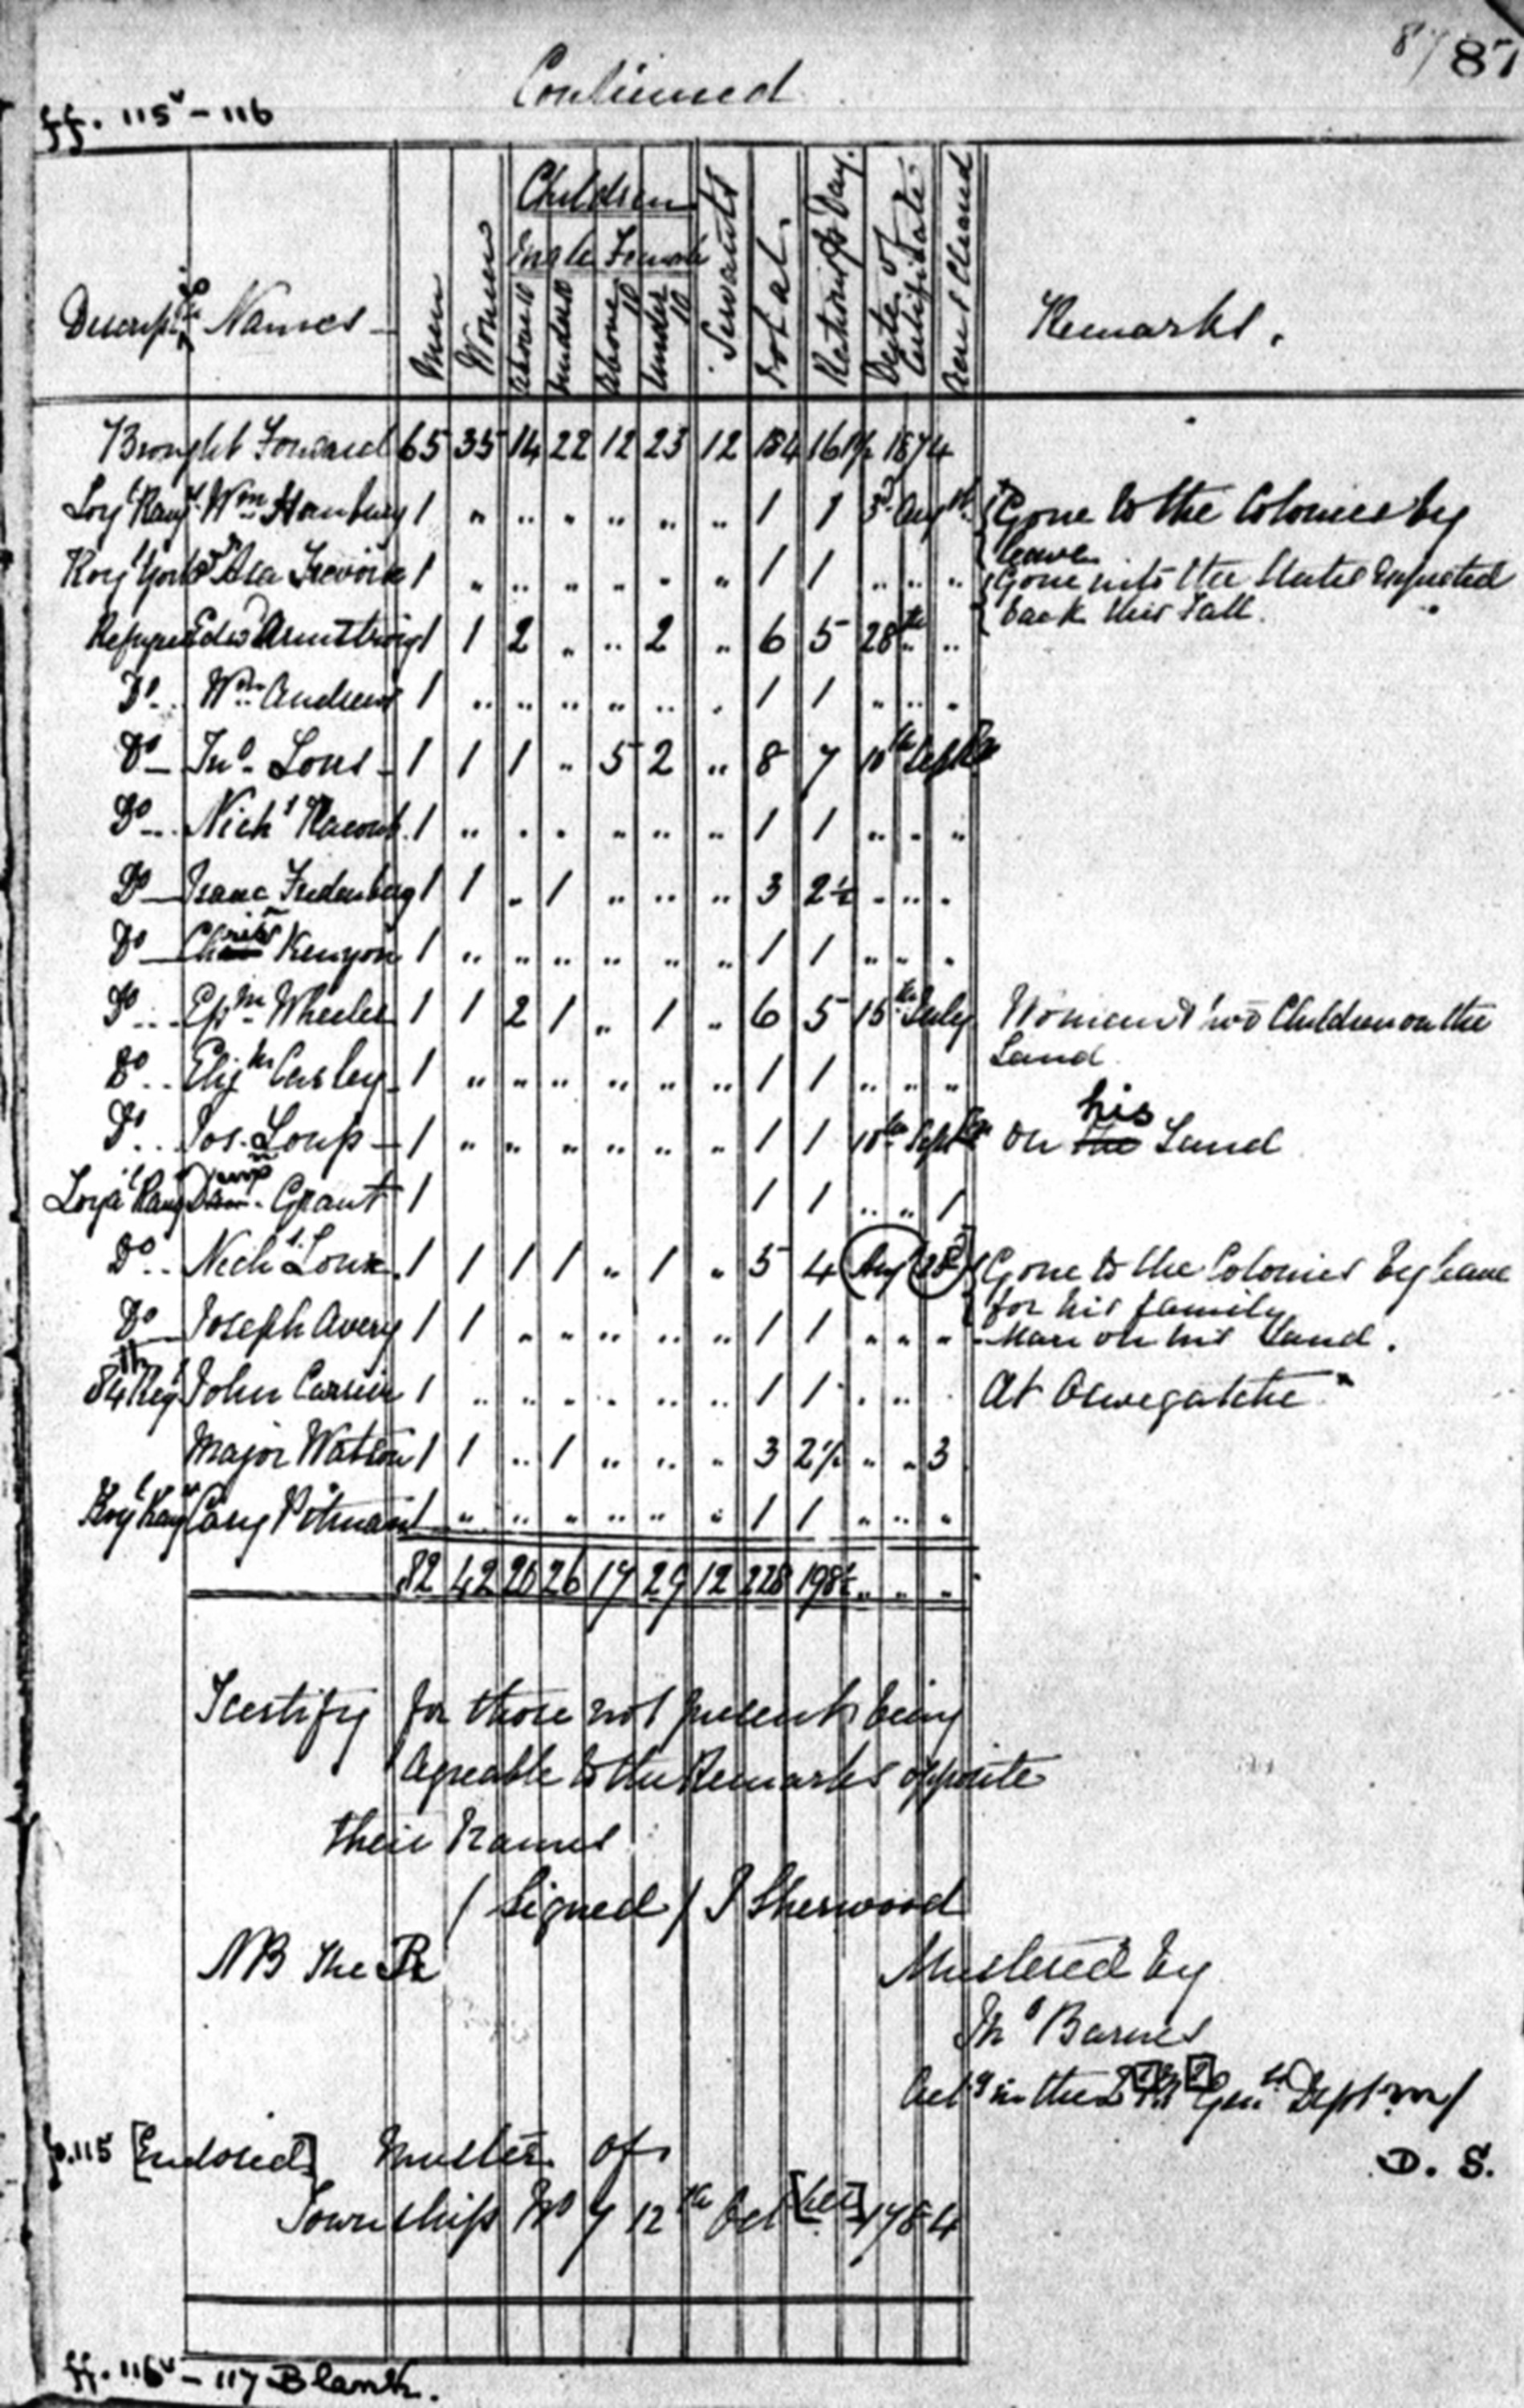 87 87
Continued
ff. 115v - 116
Descrip Names Men Women Children Servants Total Rations pr Day Date of Certificate Acres Cleard Remarks.
Male Female
above 10 under 10 above 10 under 10
Brought Forward 65 35 14 22 12 23 12 184 161½ 1874
Loyl Rangs Wm Hornbury 1 " " " " " " 1 1 3d Augst Gone to the Colonies by
leave
1 " " " " " " 1 1 " " " Gone into the States Expected
back this Fall.
Refugee Edwd Armstrong 1 1 2 " " 2 " 6 5 28th " "
Do Wm Andrews 1 " " " " " " 1 1 " " "
Do Jno Lous 1 1 1 " 5 2 " 8 7 10th Septr
Do Nichs 1 " " " " " " 1 1 " " "
Do Isaac Fredenberg 1 1 " 1 " " " 3 2½ " " "
Do Kenyon 1 " " " " " " 1 1 " " "
Do Epm Wheeler 1 1 2 1 " 1 " 6 5 15th July Woman & two Children on the
Land
Do Elijh Casley 1 " " " " " " 1 1 " " "
his
Do Jos. Loup 1 " " " " " " 1 1 10th Septr On the Land
Loyal Rangs Grant 1 1 1 " " 1
Do Nichs Loux 1 1 1 1 " 1 " 5 4 Aug 28 Gone to the Colonies by leave
for his family
Do Joseph Avery 1 1 " " " " " 1 1 " " " Man on his Land.
84th Regt John Currier 1 " " " " " " 1 1 " " " At Oswegatche
Major Watson 1 1 " 1 " " " 3 2½ " " 3
Casy Pitman 1 " " " " " " 1 1 " " "
82 42 20 26 17 29 12 228 198½ " " "
I Certify for those not present being
Agreable to the Remarks opposite
their Names
/ Signed / J Sherwood
NB The Re
Mustered by
Ths Barnes
Actg in the Genl Deptmt
p.115 [Endorsed] Muster of
D. S.
Township No 7 12th Oct[ber] 1784
ff. 116v - 117 Blank.